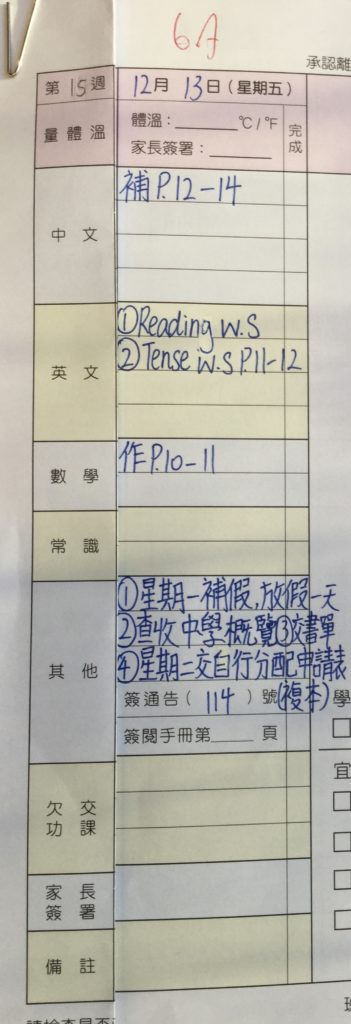 6A
承認離
第15週 12月13日(星期五)
量體溫 體溫:______°C/°F 完成
家長簽署:______
中文 補P.12-14
英文 ①Reading W.S
②Tense W.S P.11-12
數學 作P.10-11
常識
其他 ①星期一補假,放假一天
②查收中學概覽③交書單
④星期二交自行分配申請表
簽通告(114)號(複本) 學
簽閱手冊第____頁
宜
欠交功課
家長簽署
備註